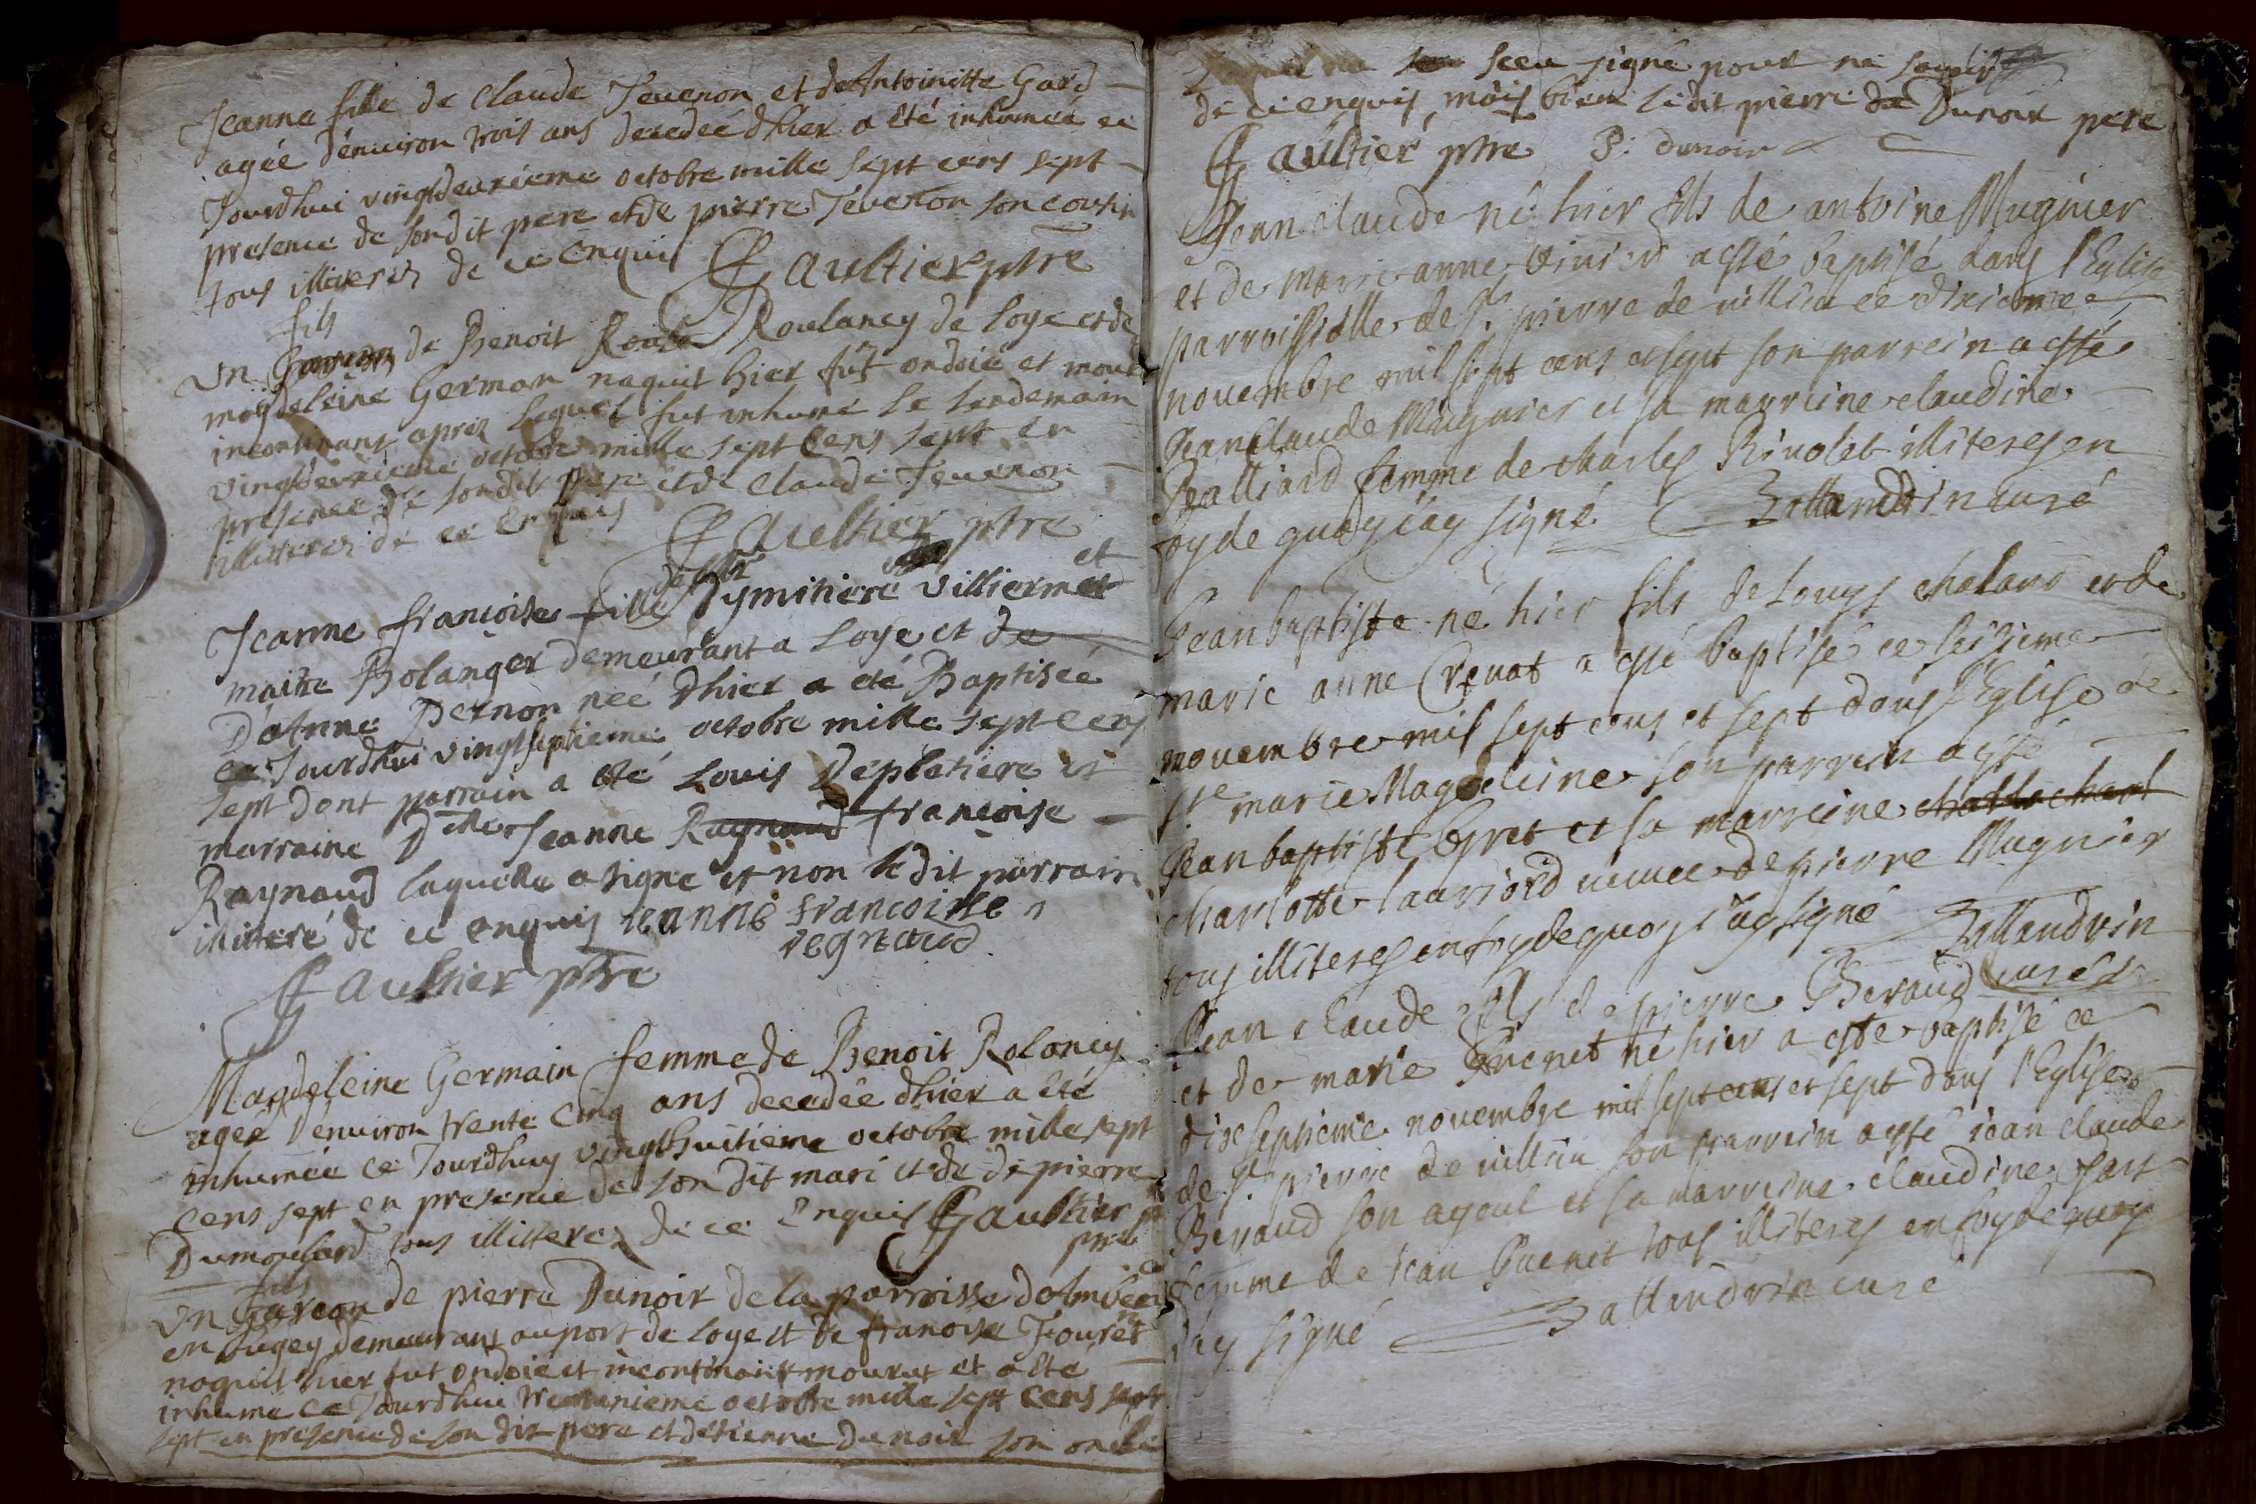 Jeanne fille de Claude Teuenon et de Antoinitte Gard
agée d'enuiron trois ans decedeé dhier a été inhumée ce
Jourdhui vingtdeuxieme octobre mille sept cens sept
presence de sondit pere et de pierre Teuenon son cousin
tous illiterez de ce enquis Gaultier ptre
fils
un garçon de Benoit Roula Roulancy de Loye et de
magdeleine German naquit hier fut ondoié et mourut
incontinant apres lequel fut inhumé le lendemain
vingt octobre mille sept Cens sept en
presence de sondit pere et de Claude Teuenon
illitterez de ce enquis Gaultier ptre
Jeanne françoise fille de villiermet et
maitre Bolanger demeurant a Loye et de
D'Anne Pernon neé dhier a eté Baptiseé
ce Jourdhui vingtseptieme octobre mille sept Cens
sept dont parrain a été Louis Depletiere et
marraine Dlle Jeanne Raynaud françoise
Raynaud laquelle a signé et non le dit parrain
illitteré de ce enquis ieanne francoise
regnaud
Gaultier ptre
Magdeleine Germain femme de Benoit Rolancy
ageé denuiron trente Cinq ans decedeé dhier a été
inhumée ce Jourdhuy vingthuitieme octobre mille sept
Cens sept en presence de son dit mari et de de pierre
Dumoulard tous illitterez de ce enquis Gaultier
ptre
fils
un Garcon de pierre Dunoir de la parroisse
en Bugey demeurant au port de Loye et de francoise Fouret
naquit hier fut ondoié et incontinant mourut et a été
inhumé ce Jourdhui octobre mille sept Cens sept
sept en presence de son dit pere et detienne Dunoir son oncle
sceu signé pour ne savoir
de ce enquis, mais bien ledit pierre de Dunoir pere
Gaultier ptre P: dunoir
Jean claude né hier fils de antoine Mugnier
et de marie anne viuier a esté baptisé dans l'Eglise
parroissialle de St. pierre de villieu ce dixieme
novembre mil sept cens et sept son parrein a esté
Jean Claude Mugnier et sa marreine claudine
Jealliard femme de charles Riuolet illiteres en
foy de quoy iay signé Ballandrin curé
Jean baptiste né hier fils de Louys chaland et de
marie anne Creuat a esté baptisé ce seizieme
novembre mil sept cens et sept dans l'Eglise de
ste marie Magdeleine son parrein a esté
Jean baptiste et sa marreine
charlotte lauriord veuue de pierre Mugnier
tous illiteres en foy de quoy i'ay signé Ballandrin
curé
Jean claude fils de pierre Beraud
et de marie né hier a esté baptisé ce
dixseptieme novembre mil sept cens et sept dans l'Eglise
de St. pierre de villieu son parrein a esté iean claude
Beraud son ayeul et sa marreine claudine
femme de iean tous illiteres en foy de quoy
iay signé Ballandrin curé